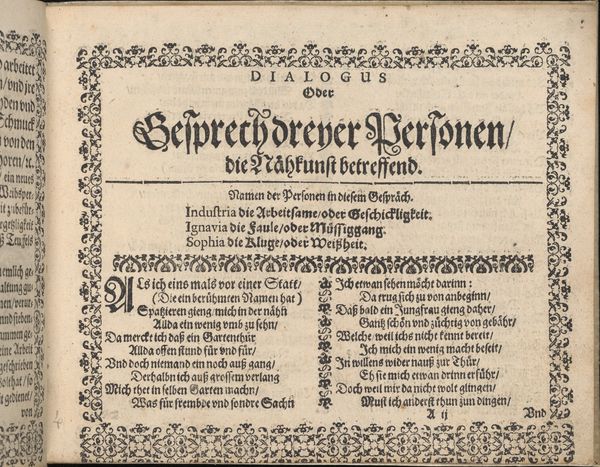 d arbeitet
n/vnd jre
yden vnd
Schmuck
n von den
horen/ꝛc.
ein neues
Weibsper-
it zubesse-
ß Teuffels
nemlich ge-
nen/verun-
eine Arbeit
geschrieben
von
DIALOGUS
Oder
Gesprech dreyer Personen/
die Nähkunst betreffend.
Namen der Personen in diesem Gespräch.
Industria die Arbeitsame/oder Geschickligkeit.
Ignavia die Faule/oder Müssiggang.
Sophia die Kluge/oder Weißheit.
Als ich eins mals vor einer Statt/
(Die ein berühmten Namen hat)
Spatzieren gieng/mich in der nähst
Allda ein wenig vmb zu sehn/
Da mercket ich daß ein Gartenthür
Allda offen stund für vnd für/
Vnd doch niemand ein noch auß gang/
Derhalbn ich auß grossem verlang
Mich thet in selben Garten machn/
Was für frembde vnd sondre Sachn
Ich etwan sehen möcht darinn:
Da trug sich zu von anbeginn/
Daß bald ein Jungfraw gieng daher/
Gantz schön vnd züchtig von gebähr/
Welche/weil ichs nicht kennt bereit/
Ich mich ein wenig macht beseit/
In willens wider nauß zur Thür/
Eh sie mich etwan drinn erführ/
Doch weil mir da nicht wolt glingen/
Must ich anderst thun zum dingen/
A ij
Vnd